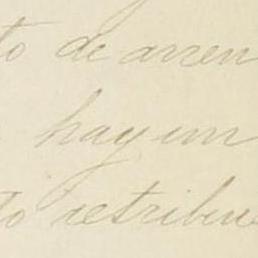 to de arren
hay un
to retribu